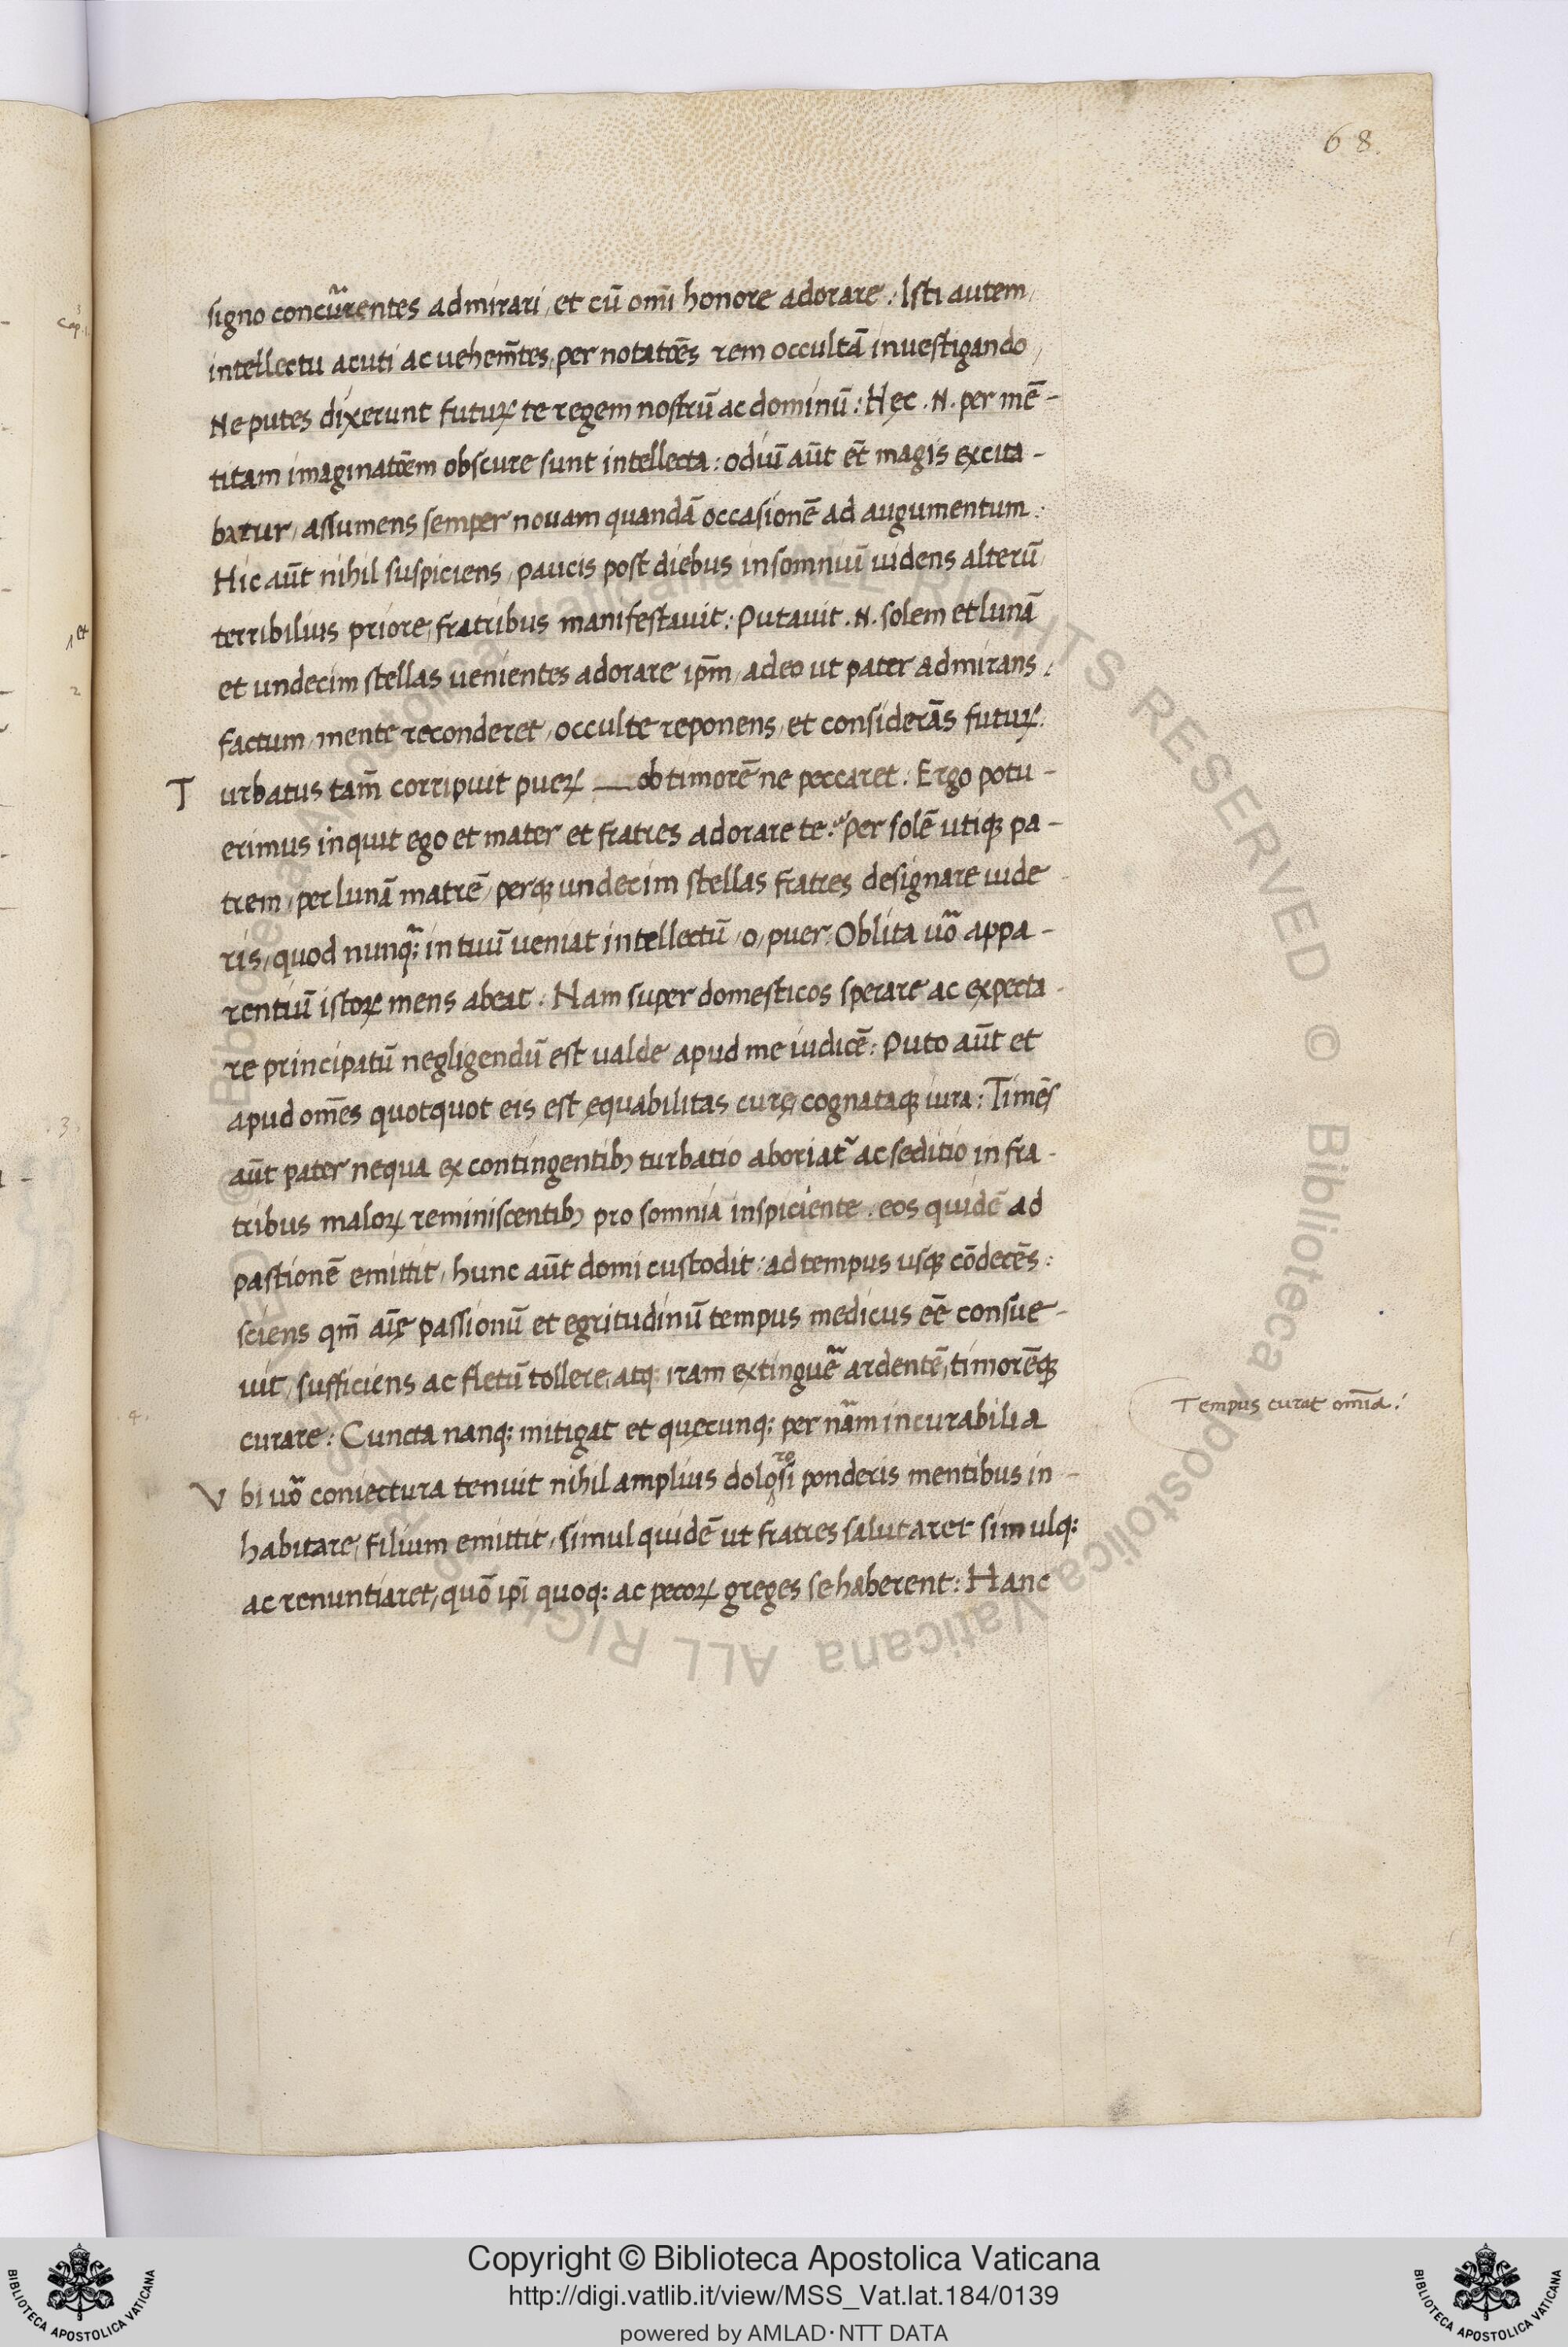 68.
signo concurrentes admirari, et cū om̄i honore adorare: Isti autem,
intellectu acuti ac uehem̄tes, per notatōēs rem occultā inuestigando,
Ne putes dixerunt futuꝝ te regem nostrū ac dominū: Hęc .N. per mē-
titam imaginatōēm obscure sunt intellecta: odiū aūt et̄ magis excita-
batur, assumens semper nouam quandā occasionē ad augumentum:
Hic aūt nihil suspiciens, paucis post diebus insomniū uidens alterū
terribilius priore, fratribus manifestauit: Putauit .N. solem et lunā
et undecim stellas uenientes adorare ip̄m, adeo ut pater admirans:
factum, mente reconderet, occulte reponens, et considerās futuꝝ.
Turbatus tam̄ corripuit pueꝝ ob timorē ne peccaret: Ergo potu-
erimus inquit ego et mater et fratres adorare te? Per solē utiqꝫ pa-
trem, per lunā matrē, perqꝫ undecim stellas fratres designare uide-
ris, quod nunqꝫ in tuū ueniat intellectū, o, puer: Oblita uō appa-
rentiū istoꝝ mens abeat: Nam super domesticos sperare ac expecta-
re principatū negligendū est ualde apud me iudicē: Puto aūt et
apud om̄es quotquot eis est ęquabilitas curę, cognataqꝫ iura: Timēs
aūt pater nequa ex contingentibꝫ turbatio aboriat᷑ ac seditio in fra-
tribus maloꝝ reminiscentibꝫ pro somnia inspiciente. eos quidē ad
pastionē emittit, hunc aūt domi custodit: ad tempus usqꝫ cōdecēs:
sciens qm̄ aīę passionū et egritudinū tempus medicus eē consue-
uit, sufficiens ac fletū tollere, atq: iram extinguē ardentē, timorēqꝫ
curare: Cuncta nanq: mitigat et quęcunq: per nāam incurabilia
Vbi uō coniectura tenuit nihil amplius dolorosi ponderis mentibus in-
habitare, filium emittit, simul quidē ut fratres salutaret simulq:
ac renuntiaret, quō ip̄i quoq: ac pecoꝝ greges se haberent: Hanc
Tempus curat om̄ia:
Copyright © Biblioteca Apostolica Vaticana
http://digi.vatlib.it/view/MSS_Vat.lat.184/0139
powered by AMLAD·NTT DATA
BIBLIOTECA APOSTOLICA VATICANA
BIBLIOTECA APOSTOLICA VATICANA